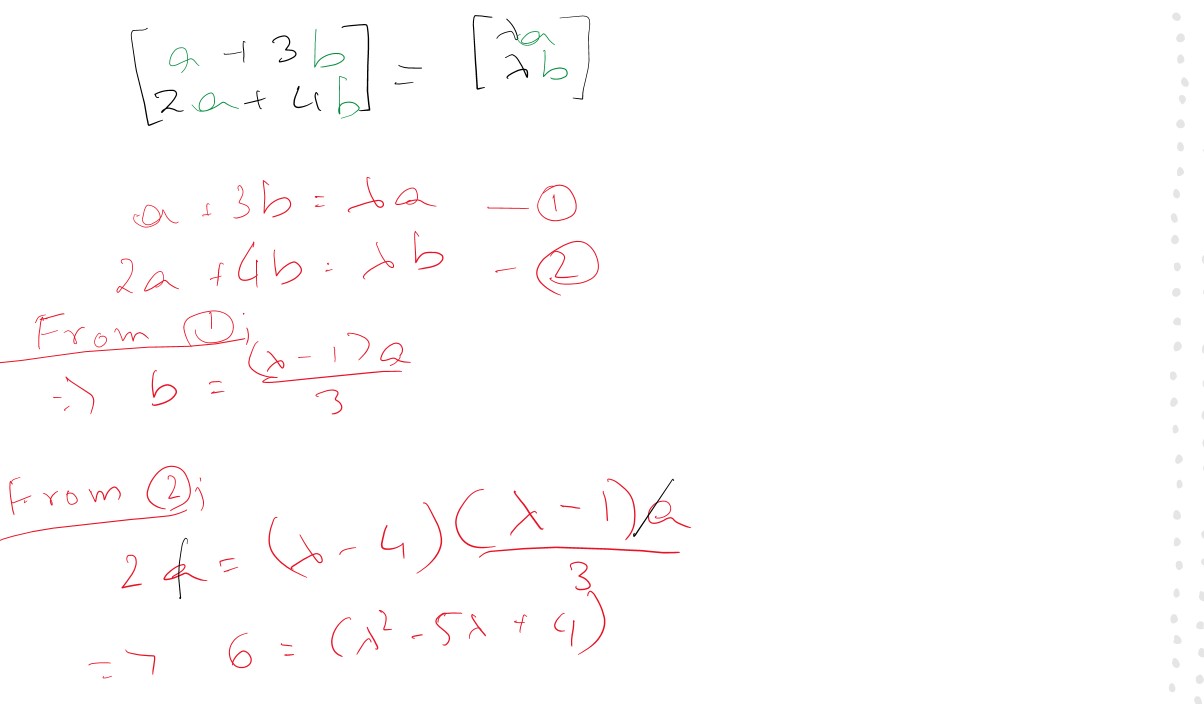 [a + 3b] = [λa]
[2a + 4b] [λb]
a + 3b = λa — ①
2a + 4b = λb - ②
From ①;
=> b = (λ - 1)a / 3
From ②;
2a = (λ - 4) (λ - 1)a / 3
=> 6 = (λ² - 5λ + 4)